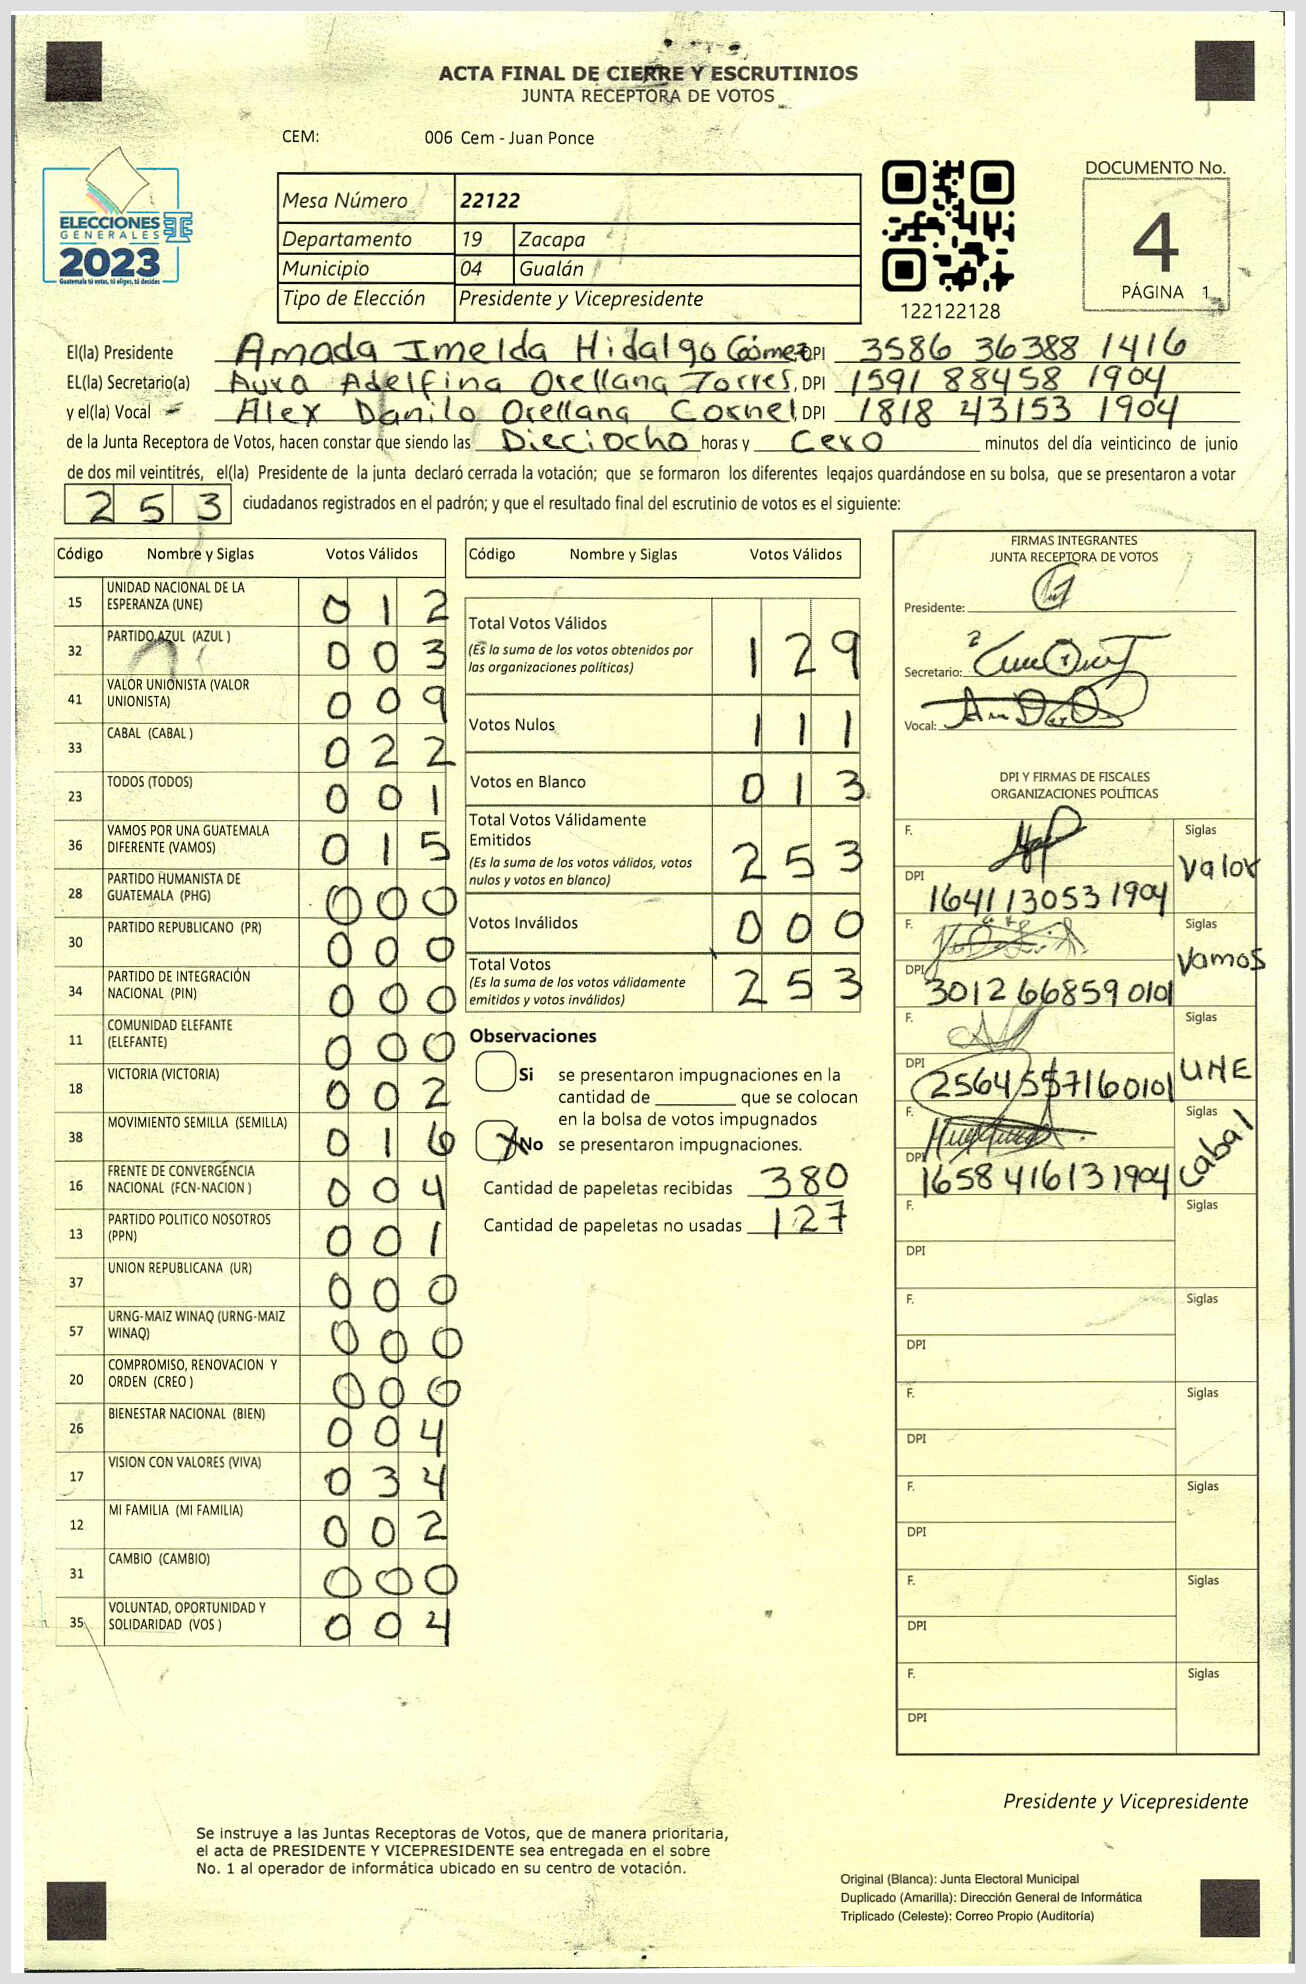 ACTA FINAL DE CIERRE Y ESCRUTINIOS
JUNTA RECEPTORA DE VOTOS
CEM: 006 Cem - Juan Ponce
ELECCIONES
GENERALES
2023
Guatemala tú votas, tú eliges, tú decides
Mesa Número 22122
Departamento 19 Zacapa
Municipio 04 Gualán
Tipo de Elección Presidente y Vicepresidente
122122128
DOCUMENTO No.
4
PÁGINA 1
El(la) Presidente Amada Imelda Hidalgo Gómez DPI 3586 36388 1416
EL(la) Secretario(a) Aura Adelfina Orellana Torres, DPI 1591 88458 1904
y el(la) Vocal Alex Danilo Orellana Coronel, DPI 1818 43153 1904
de la Junta Receptora de Votos, hacen constar que siendo las Dieciocho horas y Cero minutos del día veinticinco de junio
de dos mil veintitrés, el(la) Presidente de la junta declaró cerrada la votación; que se formaron los diferentes legajos guardándose en su bolsa, que se presentaron a votar
253 ciudadanos registrados en el padrón; y que el resultado final del escrutinio de votos es el siguiente:
Código Nombre y Siglas Votos Válidos
15 UNIDAD NACIONAL DE LA ESPERANZA (UNE) 012
32 PARTIDO AZUL (AZUL ) 003
41 VALOR UNIONISTA (VALOR UNIONISTA) 009
33 CABAL (CABAL ) 022
23 TODOS (TODOS) 001
36 VAMOS POR UNA GUATEMALA DIFERENTE (VAMOS) 015
28 PARTIDO HUMANISTA DE GUATEMALA (PHG) 000
30 PARTIDO REPUBLICANO (PR) 000
34 PARTIDO DE INTEGRACIÓN NACIONAL (PIN) 000
11 COMUNIDAD ELEFANTE (ELEFANTE) 000
18 VICTORIA (VICTORIA) 002
38 MOVIMIENTO SEMILLA (SEMILLA) 016
16 FRENTE DE CONVERGENCIA NACIONAL (FCN-NACION ) 004
13 PARTIDO POLITICO NOSOTROS (PPN) 001
37 UNION REPUBLICANA (UR) 000
57 URNG-MAIZ WINAQ (URNG-MAIZ WINAQ) 000
20 COMPROMISO, RENOVACION Y ORDEN (CREO ) 000
26 BIENESTAR NACIONAL (BIEN) 004
17 VISION CON VALORES (VIVA) 034
12 MI FAMILIA (MI FAMILIA) 002
31 CAMBIO (CAMBIO) 000
35 VOLUNTAD, OPORTUNIDAD Y SOLIDARIDAD (VOS ) 004
Código Nombre y Siglas Votos Válidos
Total Votos Válidos 129
(Es la suma de los votos obtenidos por
las organizaciones políticas)
Votos Nulos 111
Votos en Blanco 013
Total Votos Válidamente
Emitidos 253
(Es la suma de los votos válidos, votos
nulos y votos en blanco)
Votos Inválidos 000
Total Votos 253
(Es la suma de los votos válidamente
emitidos y votos inválidos)
Observaciones
Si se presentaron impugnaciones en la
cantidad de ________ que se colocan
en la bolsa de votos impugnados
X No se presentaron impugnaciones.
Cantidad de papeletas recibidas 380
Cantidad de papeletas no usadas 127
FIRMAS INTEGRANTES
JUNTA RECEPTORA DE VOTOS
Presidente:
Secretario:
Vocal:
DPI Y FIRMAS DE FISCALES
ORGANIZACIONES POLÍTICAS
F. Siglas Valor
DPI 1641 13053 1904
F. Siglas Vamos
DPI 3012 66859 0101
F. Siglas UNE
DPI 2564 55716 0101
F. Siglas Cabal
DPI 1658 41613 1904
F. Siglas
DPI
F. Siglas
DPI
F. Siglas
DPI
F. Siglas
DPI
F. Siglas
DPI
F. Siglas
DPI
Presidente y Vicepresidente
Se instruye a las Juntas Receptoras de Votos, que de manera prioritaria,
el acta de PRESIDENTE Y VICEPRESIDENTE sea entregada en el sobre
No. 1 al operador de informática ubicado en su centro de votación.
Original (Blanca): Junta Electoral Municipal
Duplicado (Amarilla): Dirección General de Informática
Triplicado (Celeste): Correo Propio (Auditoría)